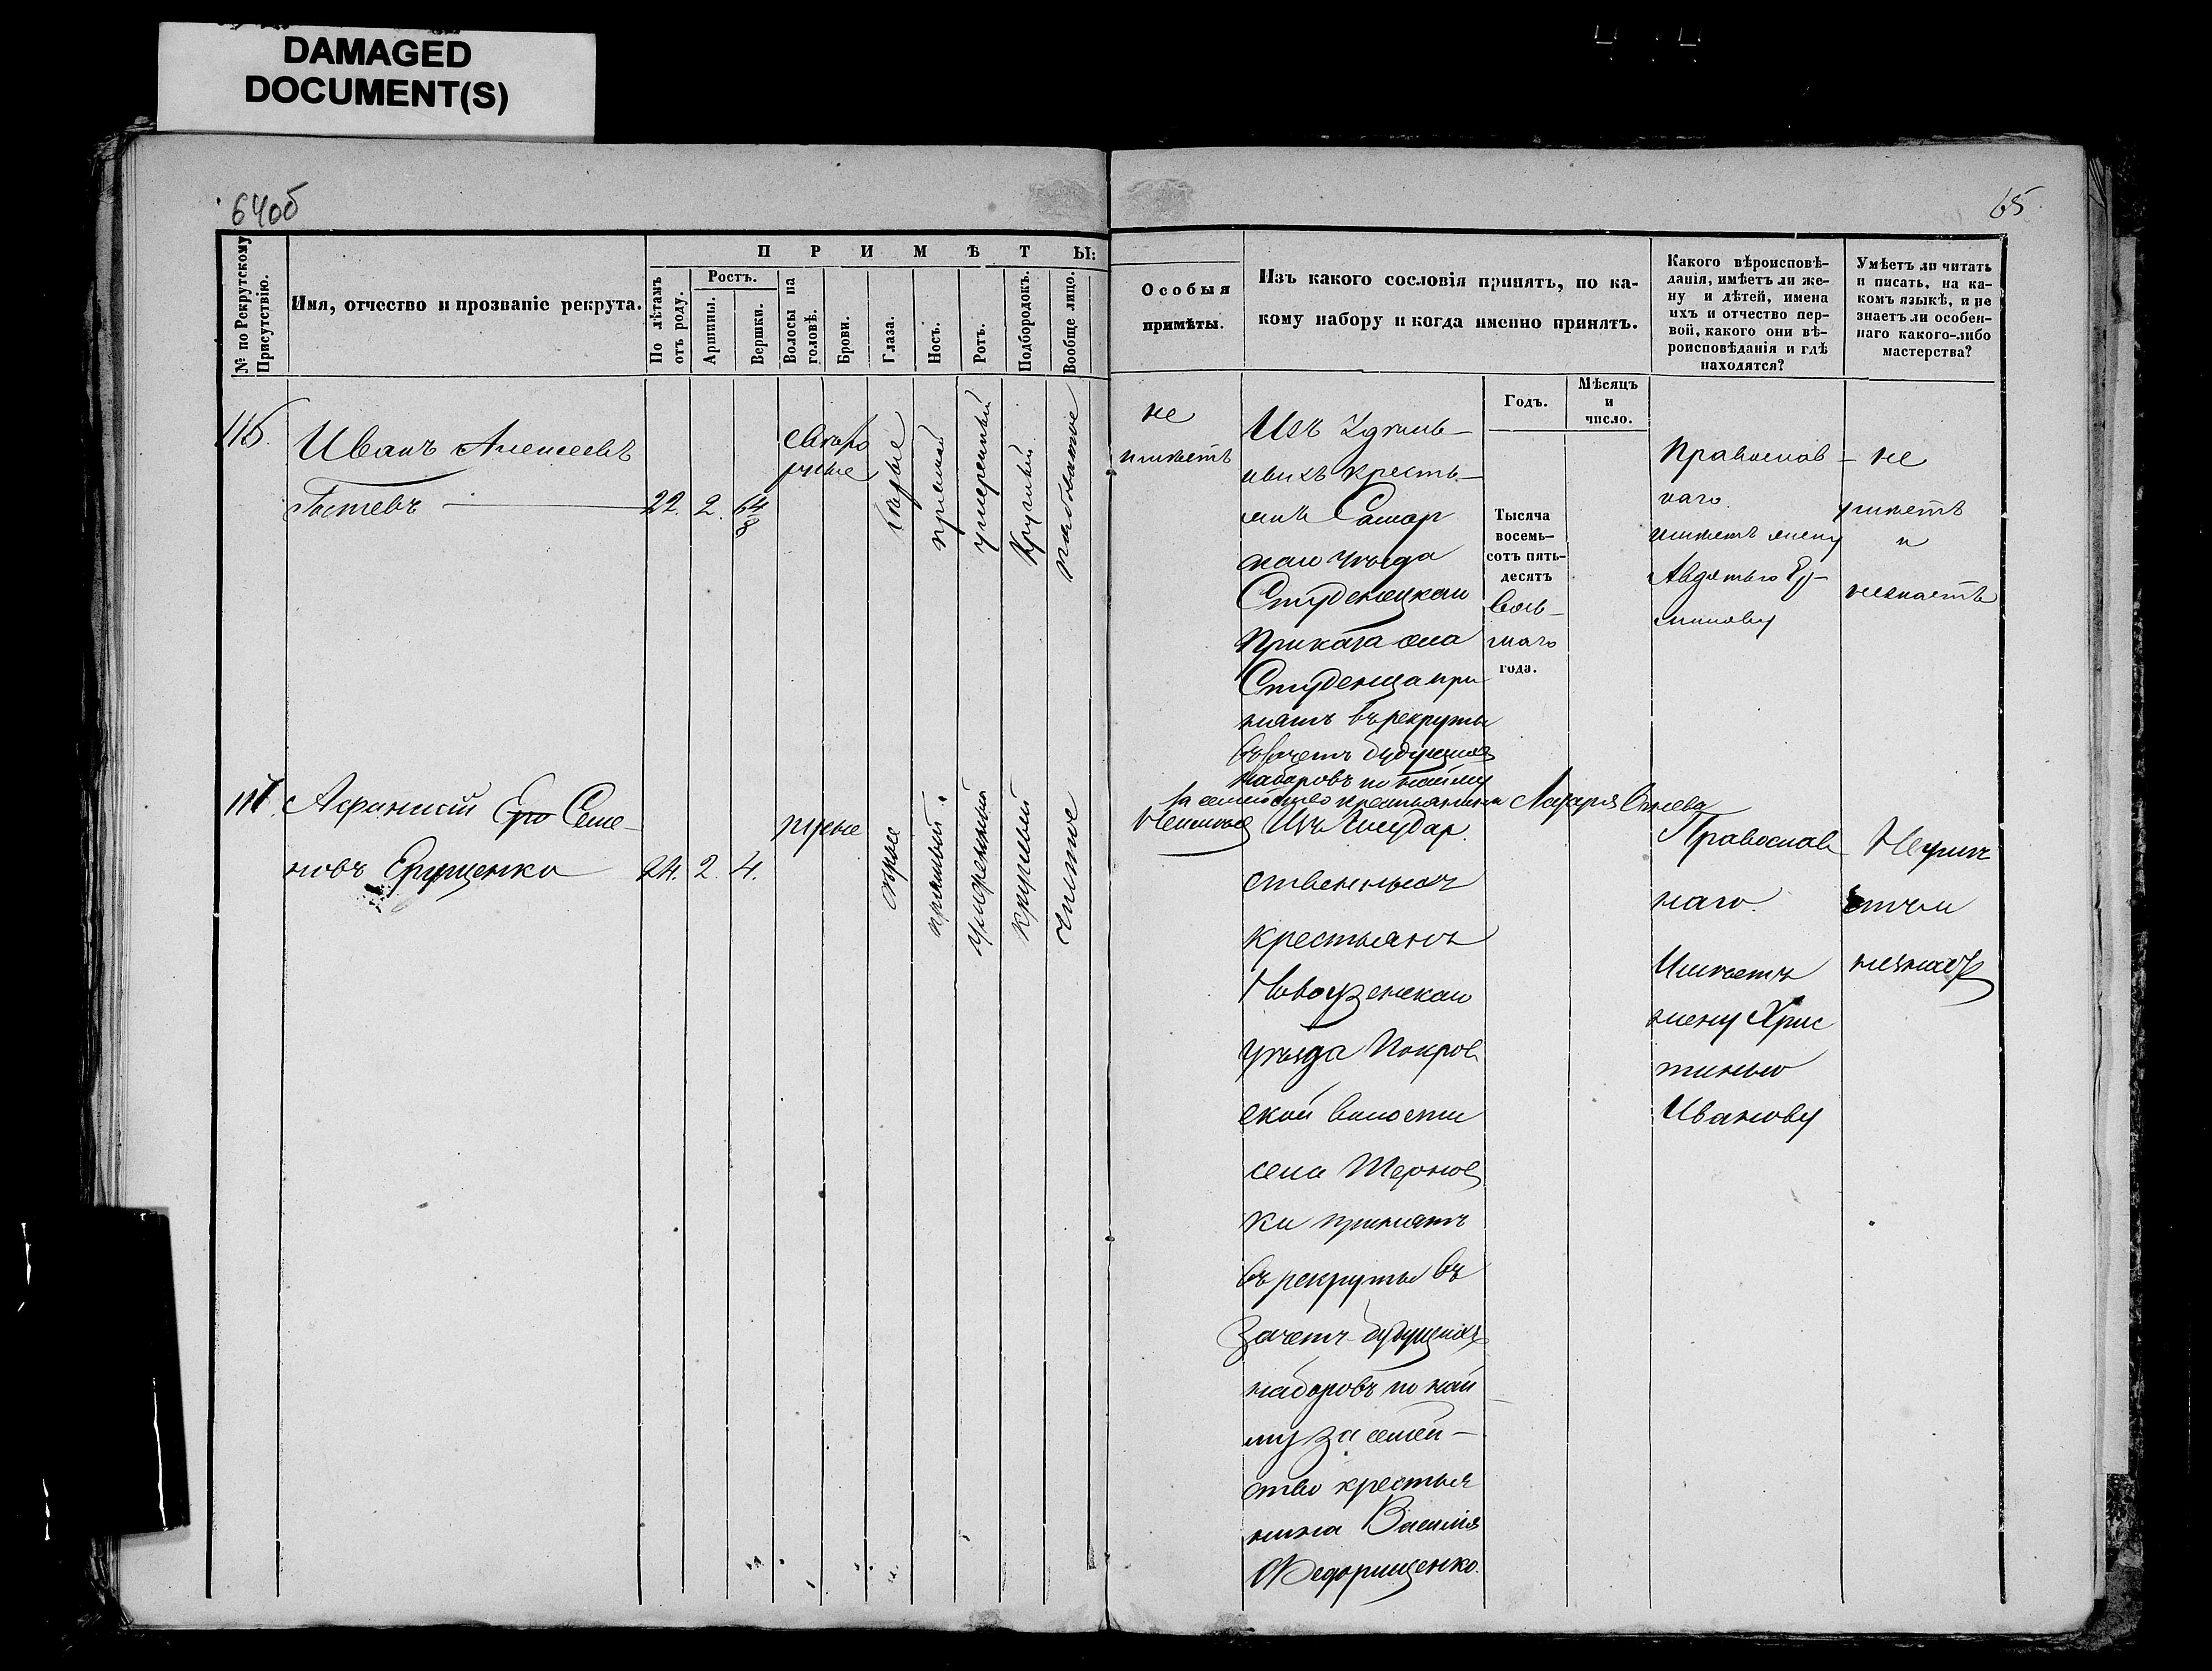 DAMAGED
DOCUMENT(S)
64об
65
№ по Рекрутскому
Присутствію.
Имя, отчество и прозваніе рекрута.
ПРИМѢТЫ:
По лѣтамъ
отъ роду.
Ростъ.
Аршины.
Вершки.
Волосы на
головѣ.
Брови.
Глаза.
Носъ.
Ротъ.
Подбородокъ.
Вообще лицо.
Особыя
примѣты.
Изъ какого сословія принятъ, по ка-
кому набору и когда именно принятъ.
Годъ.
Мѣсяцъ
и
число.
Какого вѣроисповѣ-
данія, имѣетъ ли же-
ну и дѣтей, имена
ихъ и отчество пер-
вой, какого они вѣ-
роисповѣданія и гдѣ
находятся?
Умѣетъ ли читать
и писать, на ка-
комъ языкѣ, и не
знаетъ ли особен-
наго какого-либо
мастерства?
Иванъ Алексеевъ
Гостевъ
22. 2. 6 4/8
светло
русые
карие
прямой
умеренный
круглый
рябоватое
не
имѣетъ
Изъ Удѣль-
ныхъ кресть-
янъ Самар
скаго уѣзда
Студенецкаго
Приказа села
Студенца при
нятъ въ рекруты
въ зачетъ будущихъ
наборовъ по найму
за семейство крестьянина Лазаря
Тысяча
восемь-
сотъ пять-
десятъ
вось-
маго
года.
Православ-
наго.
имѣетъ жену
Авдотью Ер-
милову
не
умѣетъ
и
незнаетъ
Афанасій Еро Семе-
новъ Ерущенко
24. 2. 4.
русые
серые
прямый
умеренный
круглый
чистое
Неимѣе
Изъ Государ.
ственныхъ
крестьянъ
Новоузенскаго
уѣзда Покров
ской волости
села Тернов
ки принятъ
въ рекруты въ
зачетъ будущихъ
наборовъ по най
му за семей-
ство крестья
нина Василія
Федорищенко.
Православ
наго.
Имѣетъ
жену Хрис
тинью
Иванову
Неумѣ
етъ и
незнаетъ